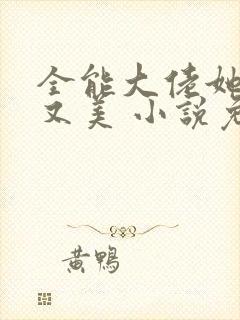 全能大佬她
又美 小說免
黃鴨